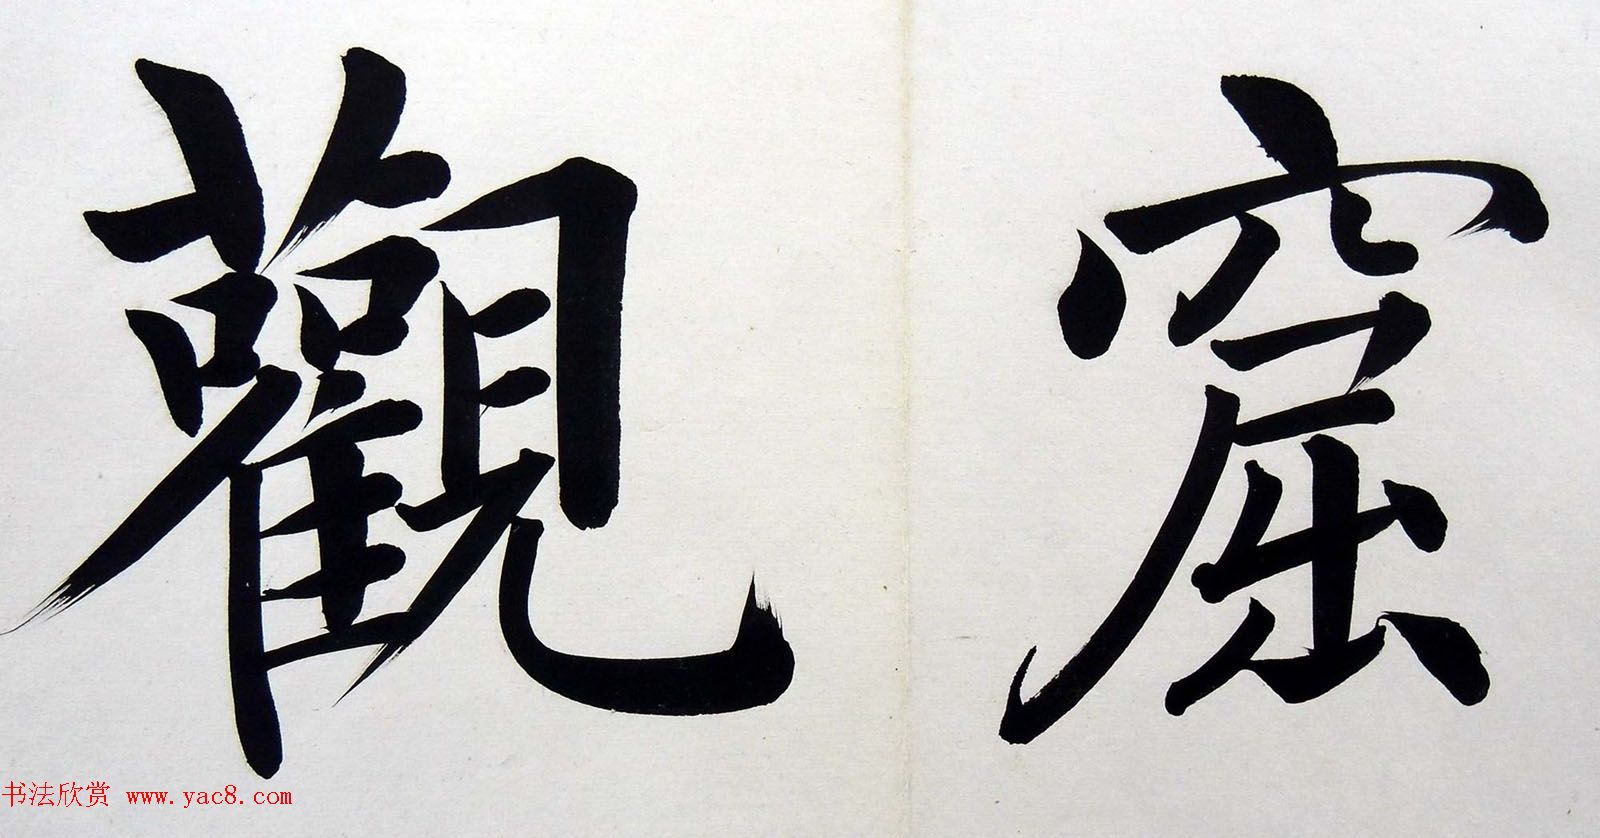 窟
觀
书法欣赏 www.yac8.com